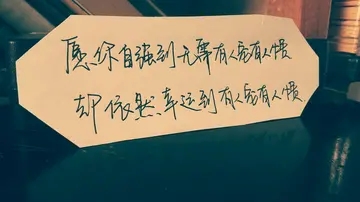 愿你自强到无需有人宠有人惯
却依然幸运到有人宠有人惯